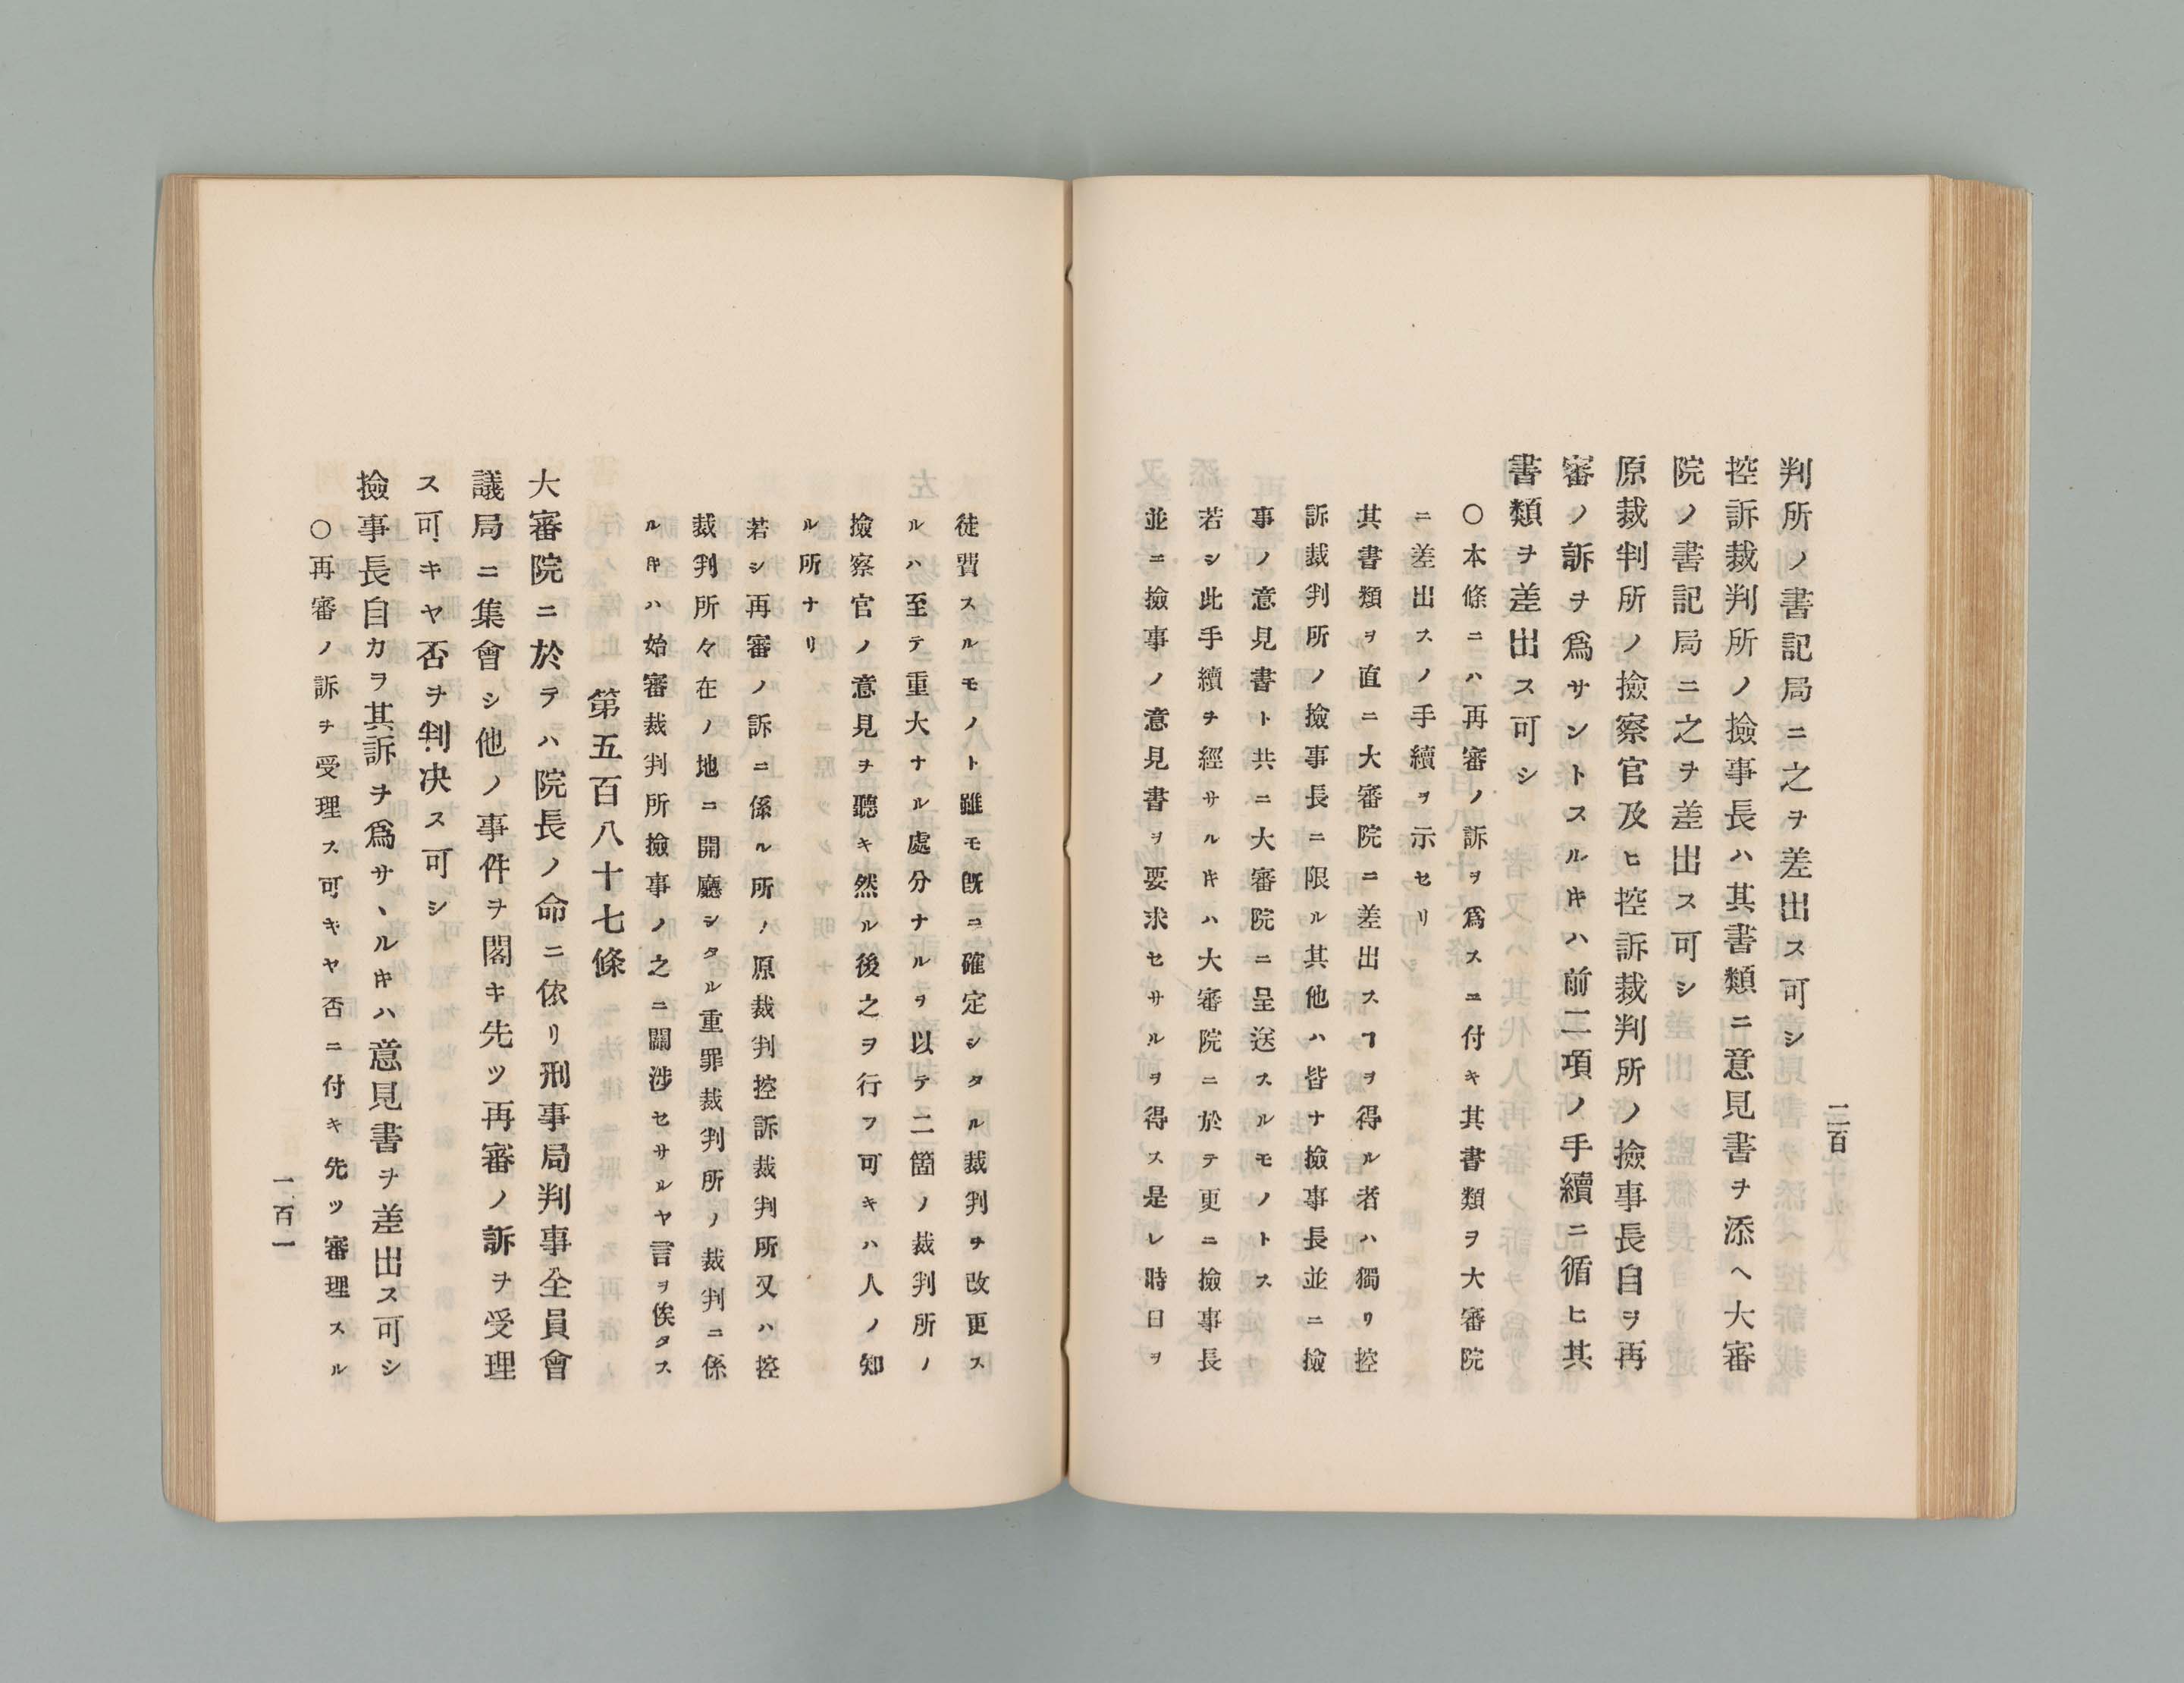 二百
判所ノ書記局ニ之ヲ差出ス可シ
控訴裁判所ノ撿事長ハ其書類ニ意見書ヲ添ヘ大審
院ノ書記局ニ之ヲ差出ス可シ
原裁判所ノ撿察官及ヒ控訴裁判所ノ撿事長自ヲ再
審ノ訴ヲ爲サントスルキハ前二項ノ手續ニ循ヒ其
書類ヲ差出ス可シ
〇本條ニハ再審ノ訴ヲ爲スニ付キ其書類ヲ大審院
ニ差出スノ手續ヲ示セリ
其書類ヲ直ニ大審院ニ差出スヿヲ得ル者ハ獨リ控
訴裁判所ノ撿事長ニ限ル其他ハ皆ナ撿事長並ニ撿
事ノ意見書ト共ニ大審院ニ呈送スルモノトス
若シ此手續ヲ經サルキハ大審院ニ於テ更ニ撿事長
並ニ撿事ノ意見書ヲ要求セサルヲ得ス是レ時日ヲ
徒費スルモノト雖モ既ニ確定シタル裁判ヲ改更ス
ルハ至テ重大ナル處分ナルヲ以テ二箇ノ裁判所ノ
撿察官ノ意見ヲ聽キ然ル後之ヲ行フ可キハ人ノ知
ル所ナリ
若シ再審ノ訴ニ係ル所ノ原裁判控訴裁判所又ハ控
裁判所々在ノ地ニ開廳シタル重罪裁判所ノ裁判ニ係
ルキハ始審裁判所撿事ノ之ニ關渉セサルヤ言ヲ俟タス
第五百八十七條
大審院ニ於テハ院長ノ命ニ依リ刑事局判事全員會
議局ニ集會シ他ノ事件ヲ閣キ先ツ再審ノ訴ヲ受理
ス可キヤ否ヲ判决ス可シ
撿事長自カヲ其訴ヲ爲サヽルキハ意見書ヲ差出ス可シ
〇再審ノ訴ヲ受理ス可キヤ否ニ付キ先ツ審理スル
一百一